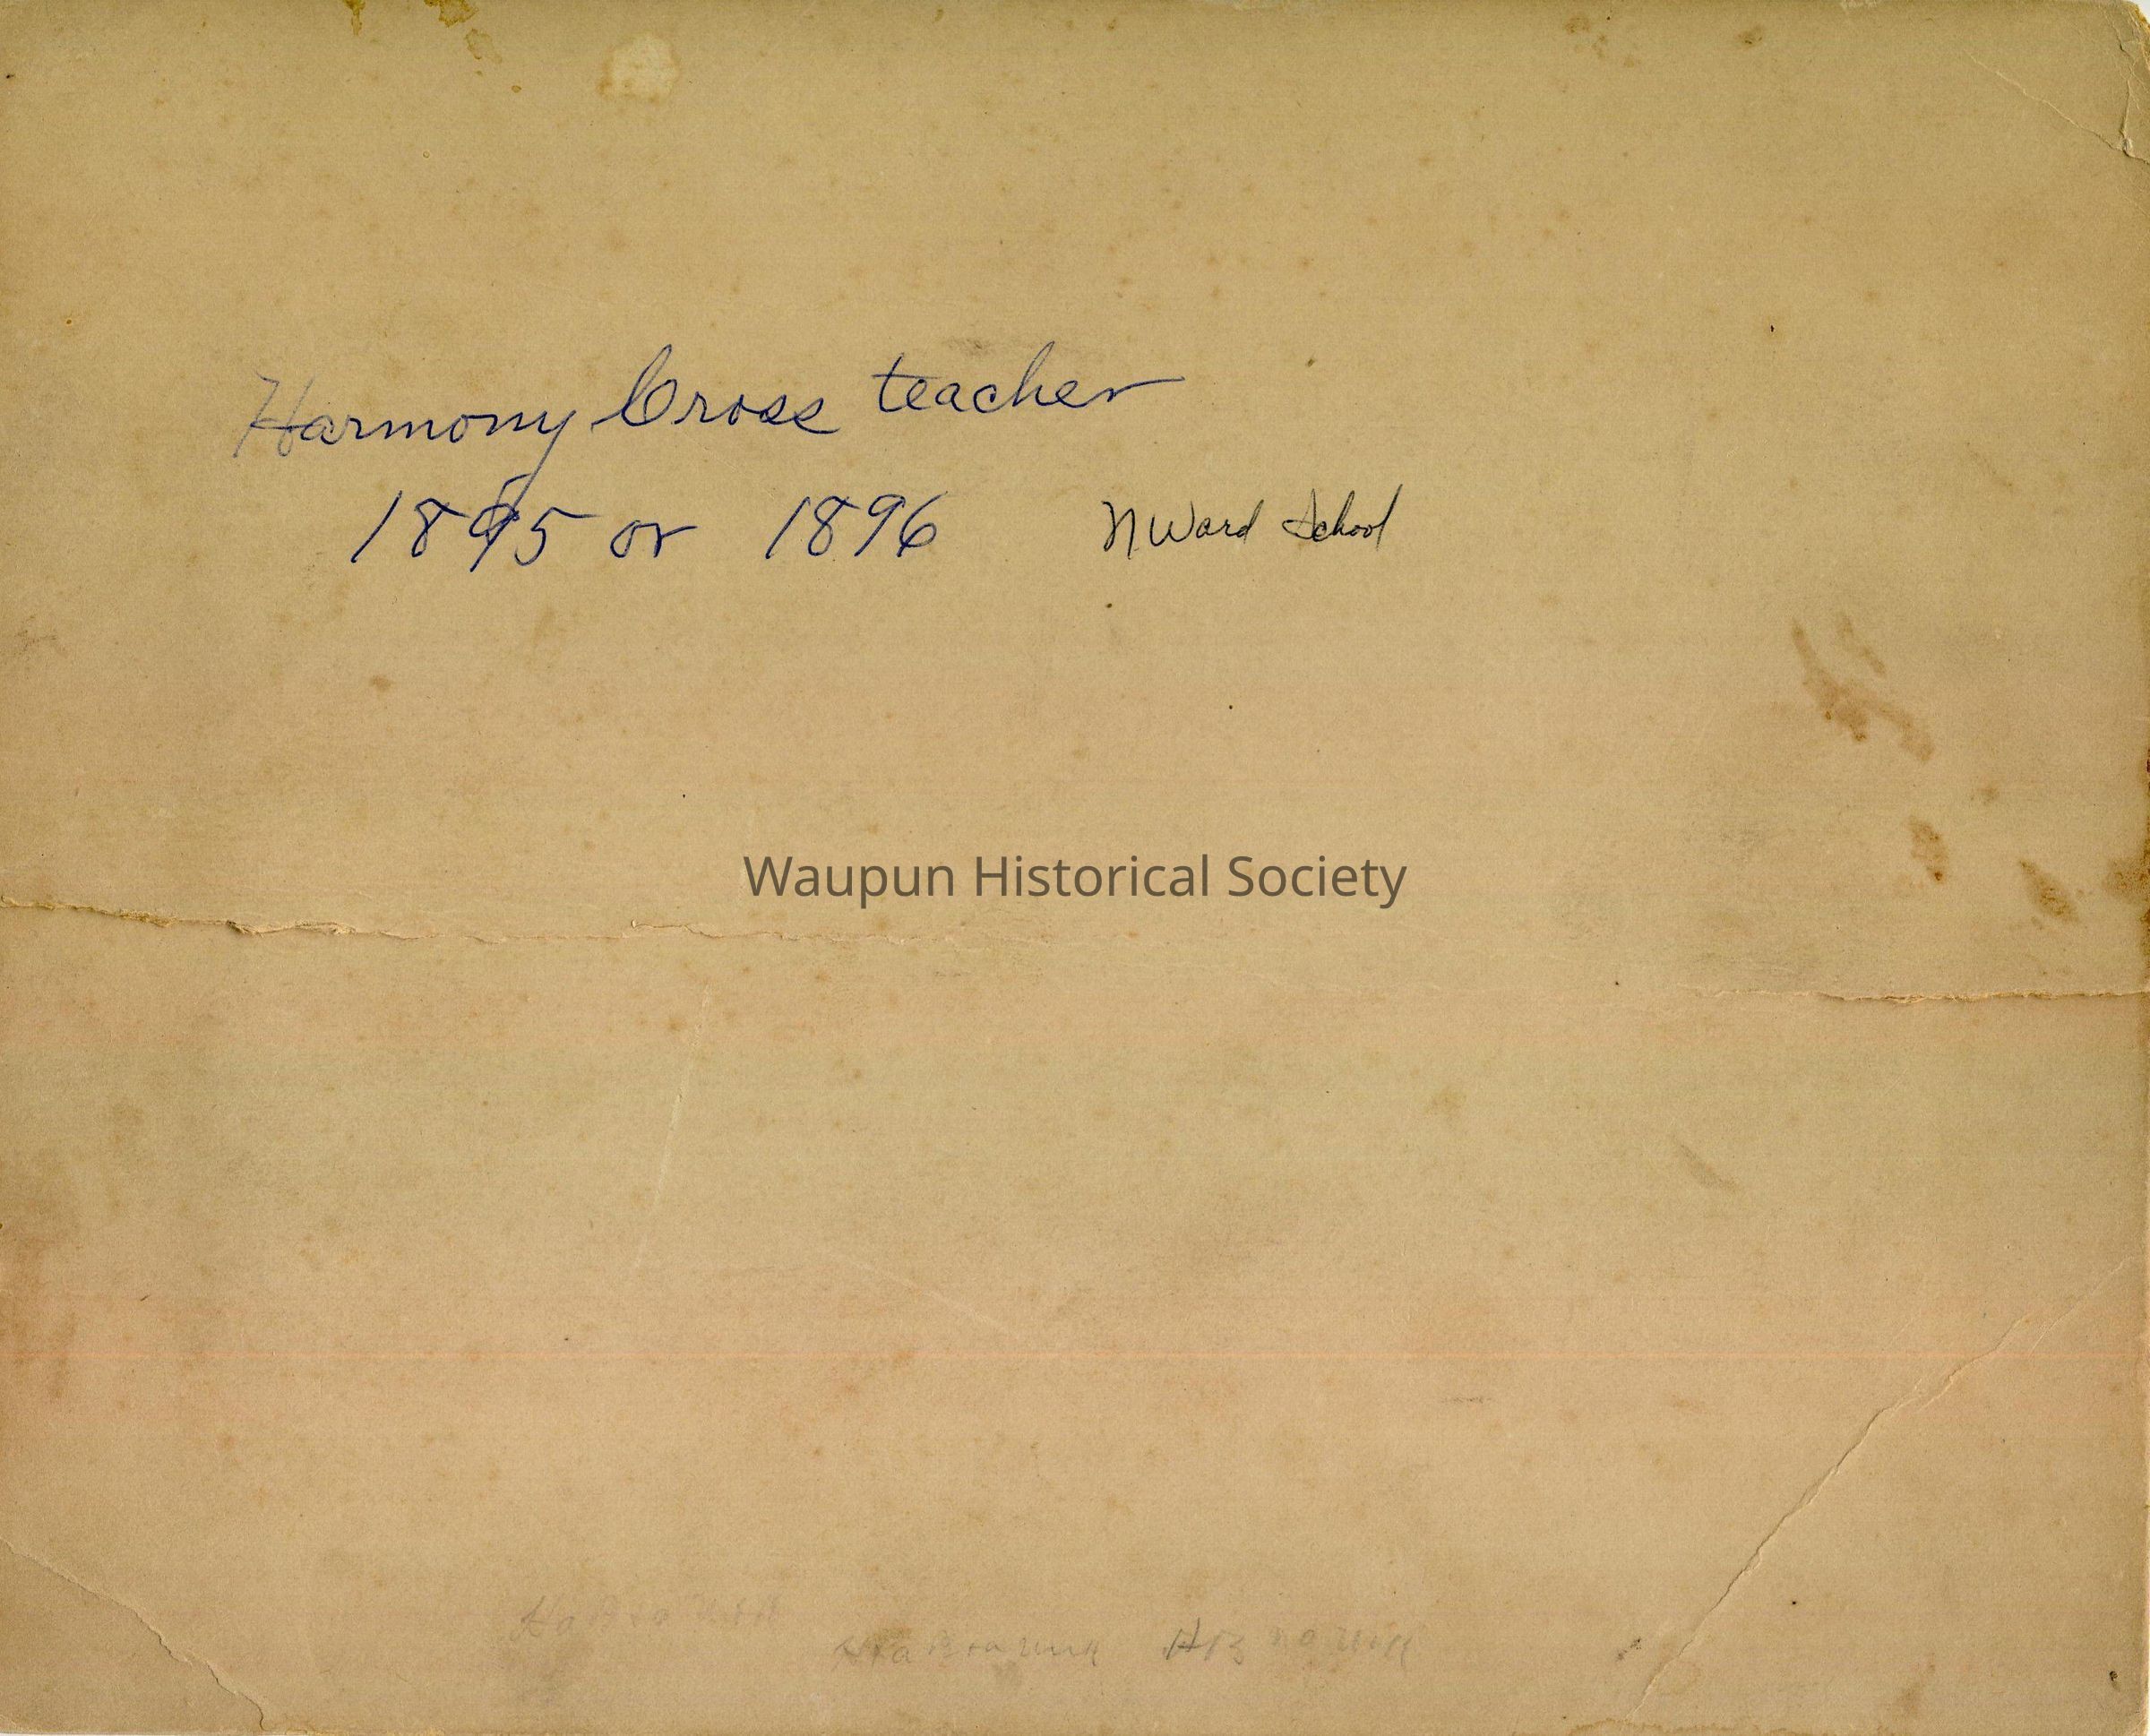 Harmony Cross teacher
1895 or 1896 N Ward School
Waupun Historical Society